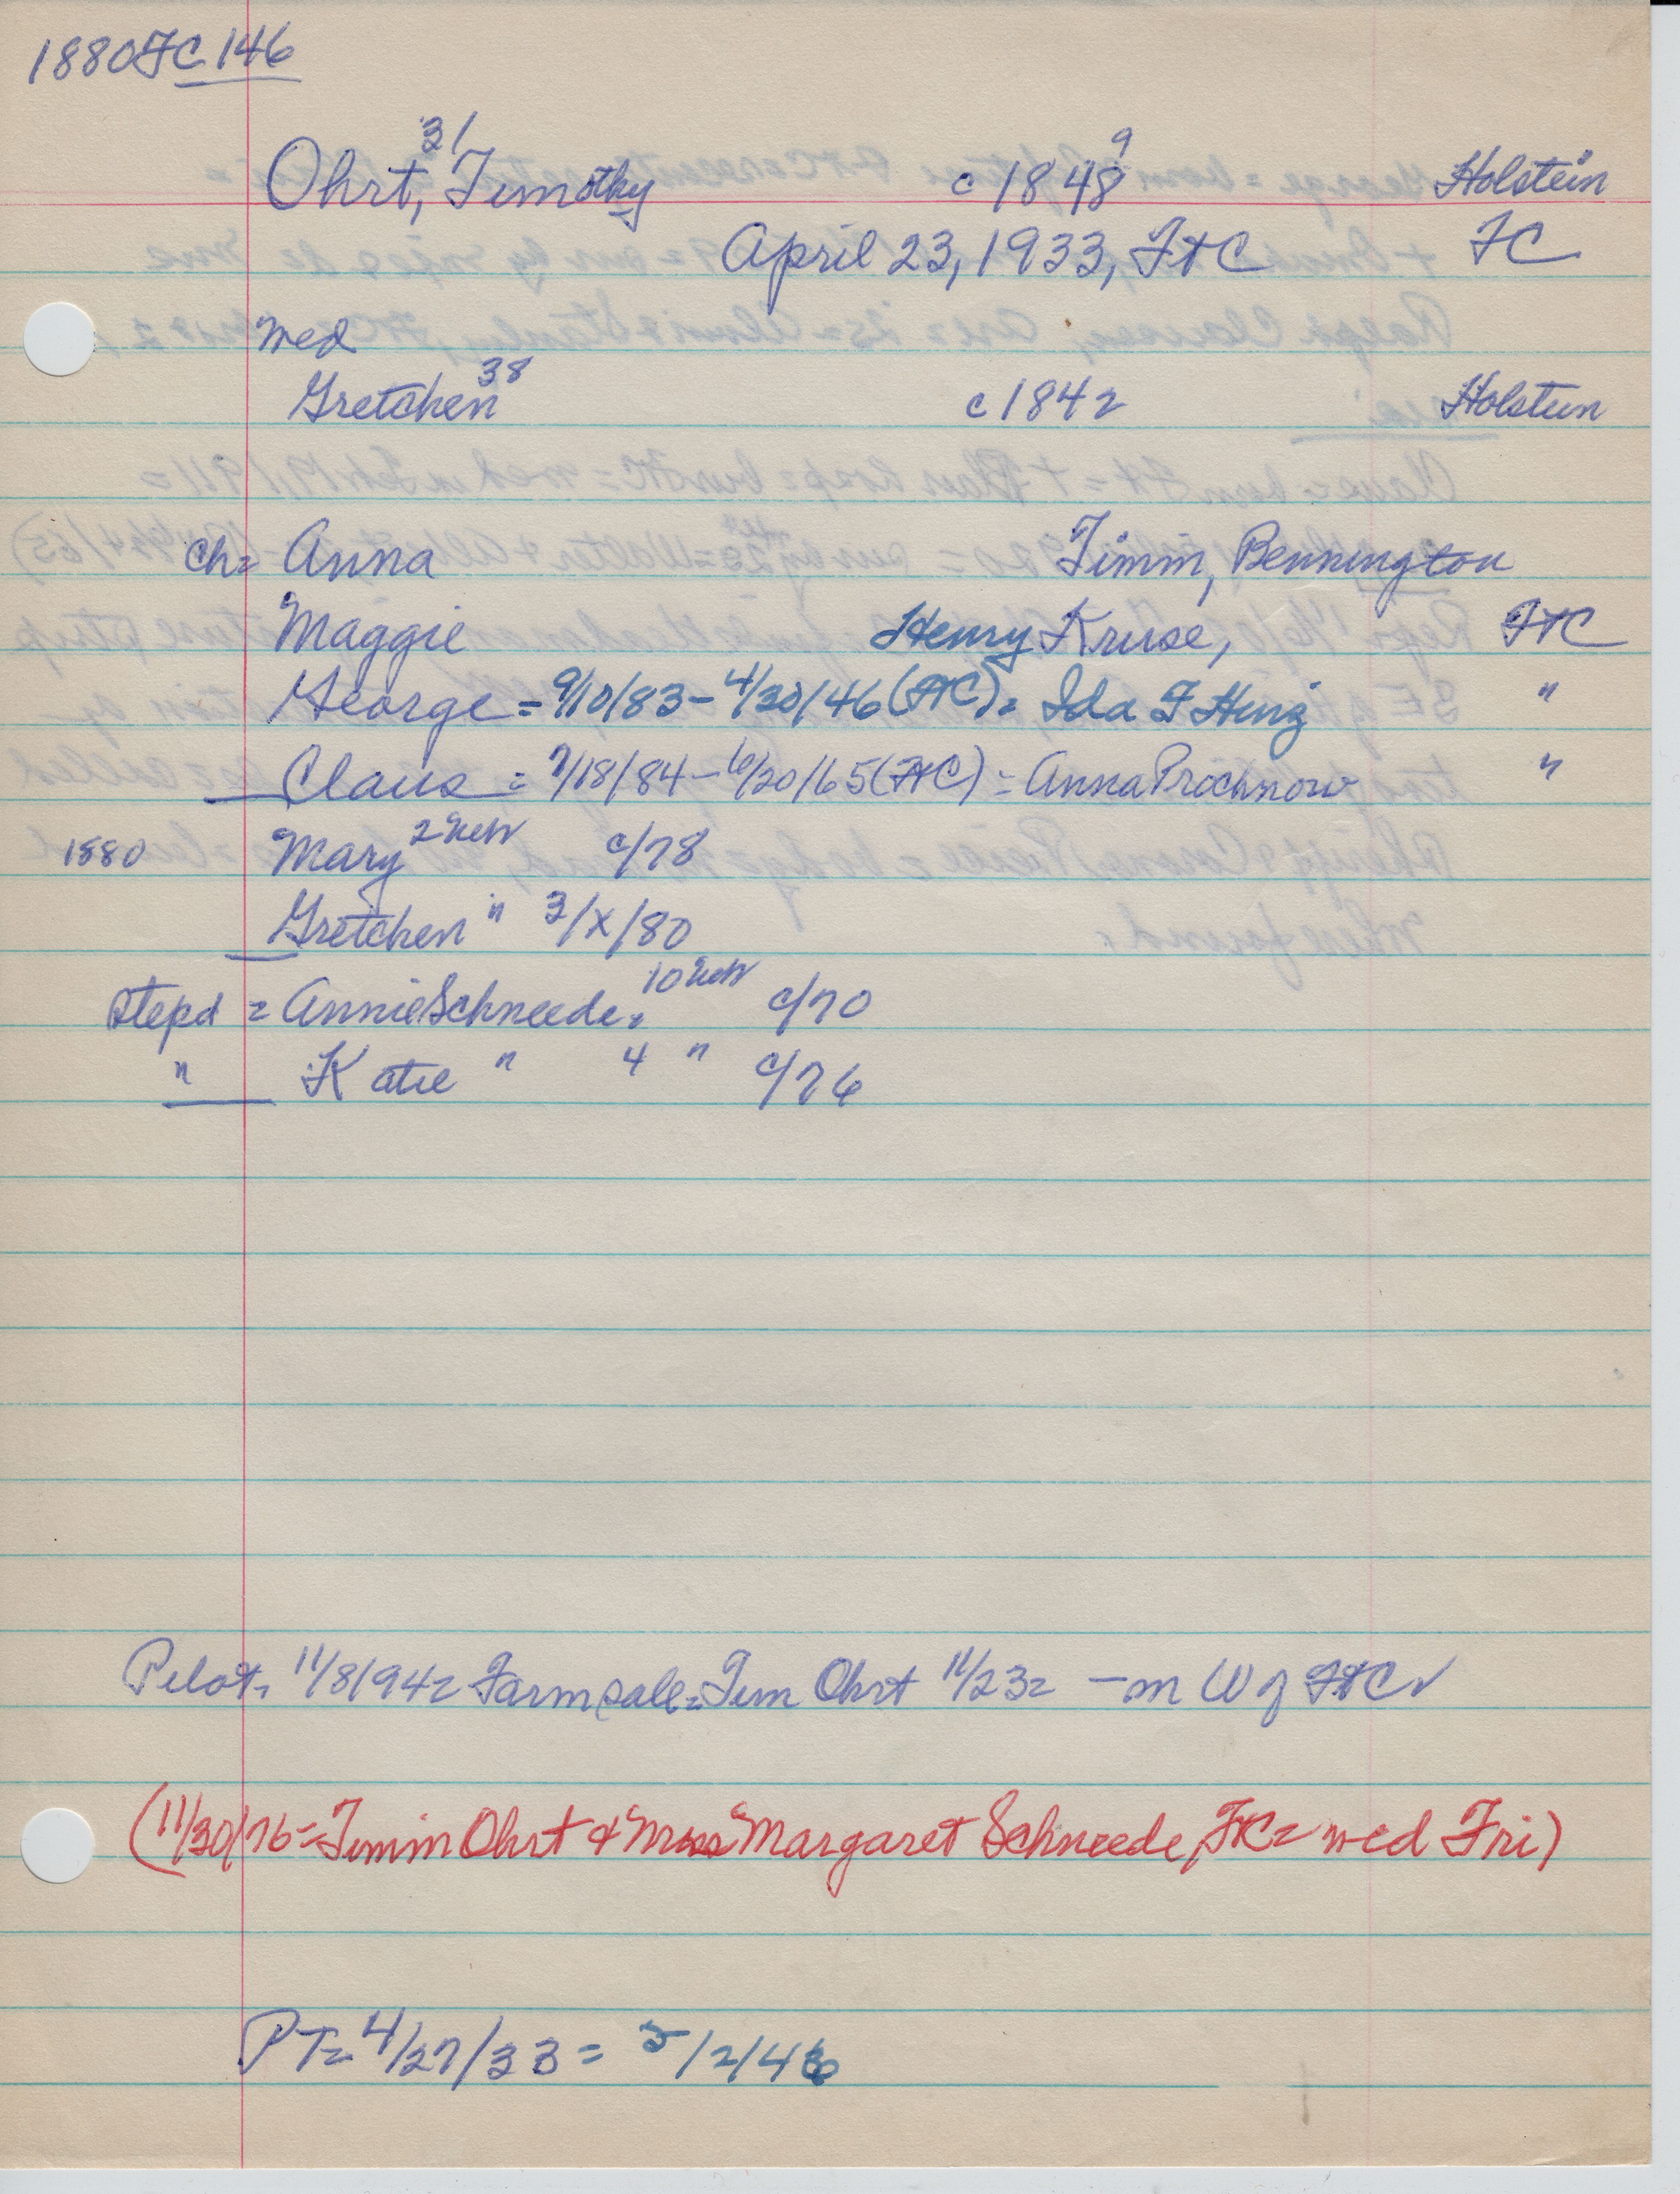 1880 FC 146
31 9
Ohrt, Timothy c 1848 Holstein
April 23, 1933, FtC FC
med
38
Gretchen c 1842 Holstein
ch= Anna Timm, Bennington
Maggie Henry Kruse, FtC
George = 9/10/83 - 4/30/46 (FtC) = Ida F Hinz "
Claus = 7/18/84 - 6/20/65 (FtC) = Anna Prochnow "
1880 Mary 2 Neb c/78
Gretchen " 3/x/80
Stepd = Annie Schneede, 10 Neb c/70
" Katie " 4 " c/76
Pilot = 11/8/94 = Farm sale = Tim Ohrt 11/23 = - m W of FtC ✓
(11/30/76 = Timm Ohrt & Margaret Schneede, FC = med Fri)
PT = 4/27/33 = 5/2/46